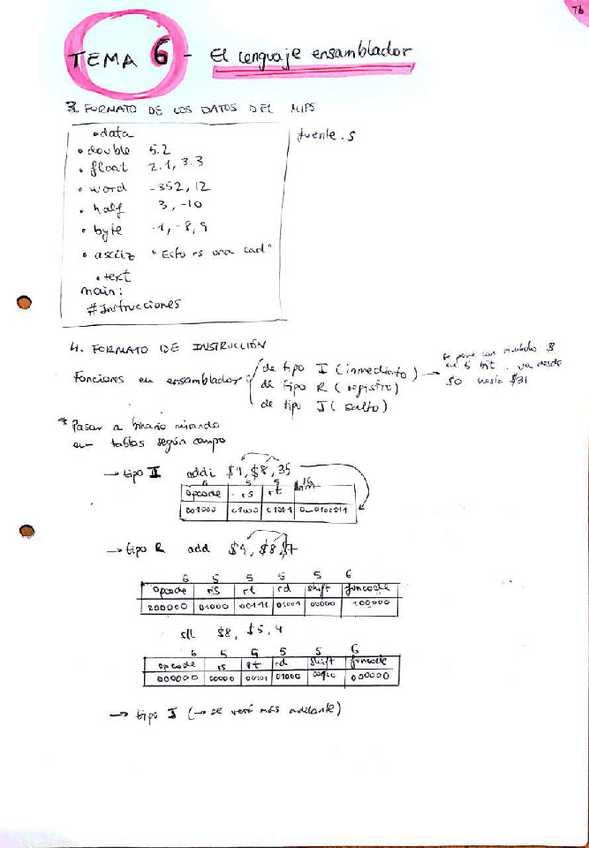 7b
TEMA 6 - El lenguaje ensamblador
3. FORMATO DE LOS DATOS DEL MIPS
.data
fuente.s
.double 5.2
.float 2.1, 3.3
.word -352, 12
.half 3, -10
.byte -1, -8, 9
.asciiz "Esto es una cad"
.text
main:
#Instrucciones
4. FORMATO DE INSTRUCCIÓN
Funciones en ensamblador
de tipo I (inmediato) → se pone con símbolo $
en 5 bit. va desde
$0 hasta $31
de tipo R (registro)
de tipo J (salto)
* Pasar a binario mirando
en tablas según campo
→ tipo I addi $9, $8, 35
6 5 5 16
opcode rs rt Inm
001000 01000 01001 0...0100011
→ tipo R add $9, $8, $7
6 5 5 5 5 6
opcode rs rt rd shift funcode
000000 01000 00111 01001 00000 100000
sll $8, $5, 4
6 5 5 5 5 6
opcode rs rt rd shift funcode
000000 00000 00101 01000 00100 000000
→ tipo J (→ se verá más adelante)